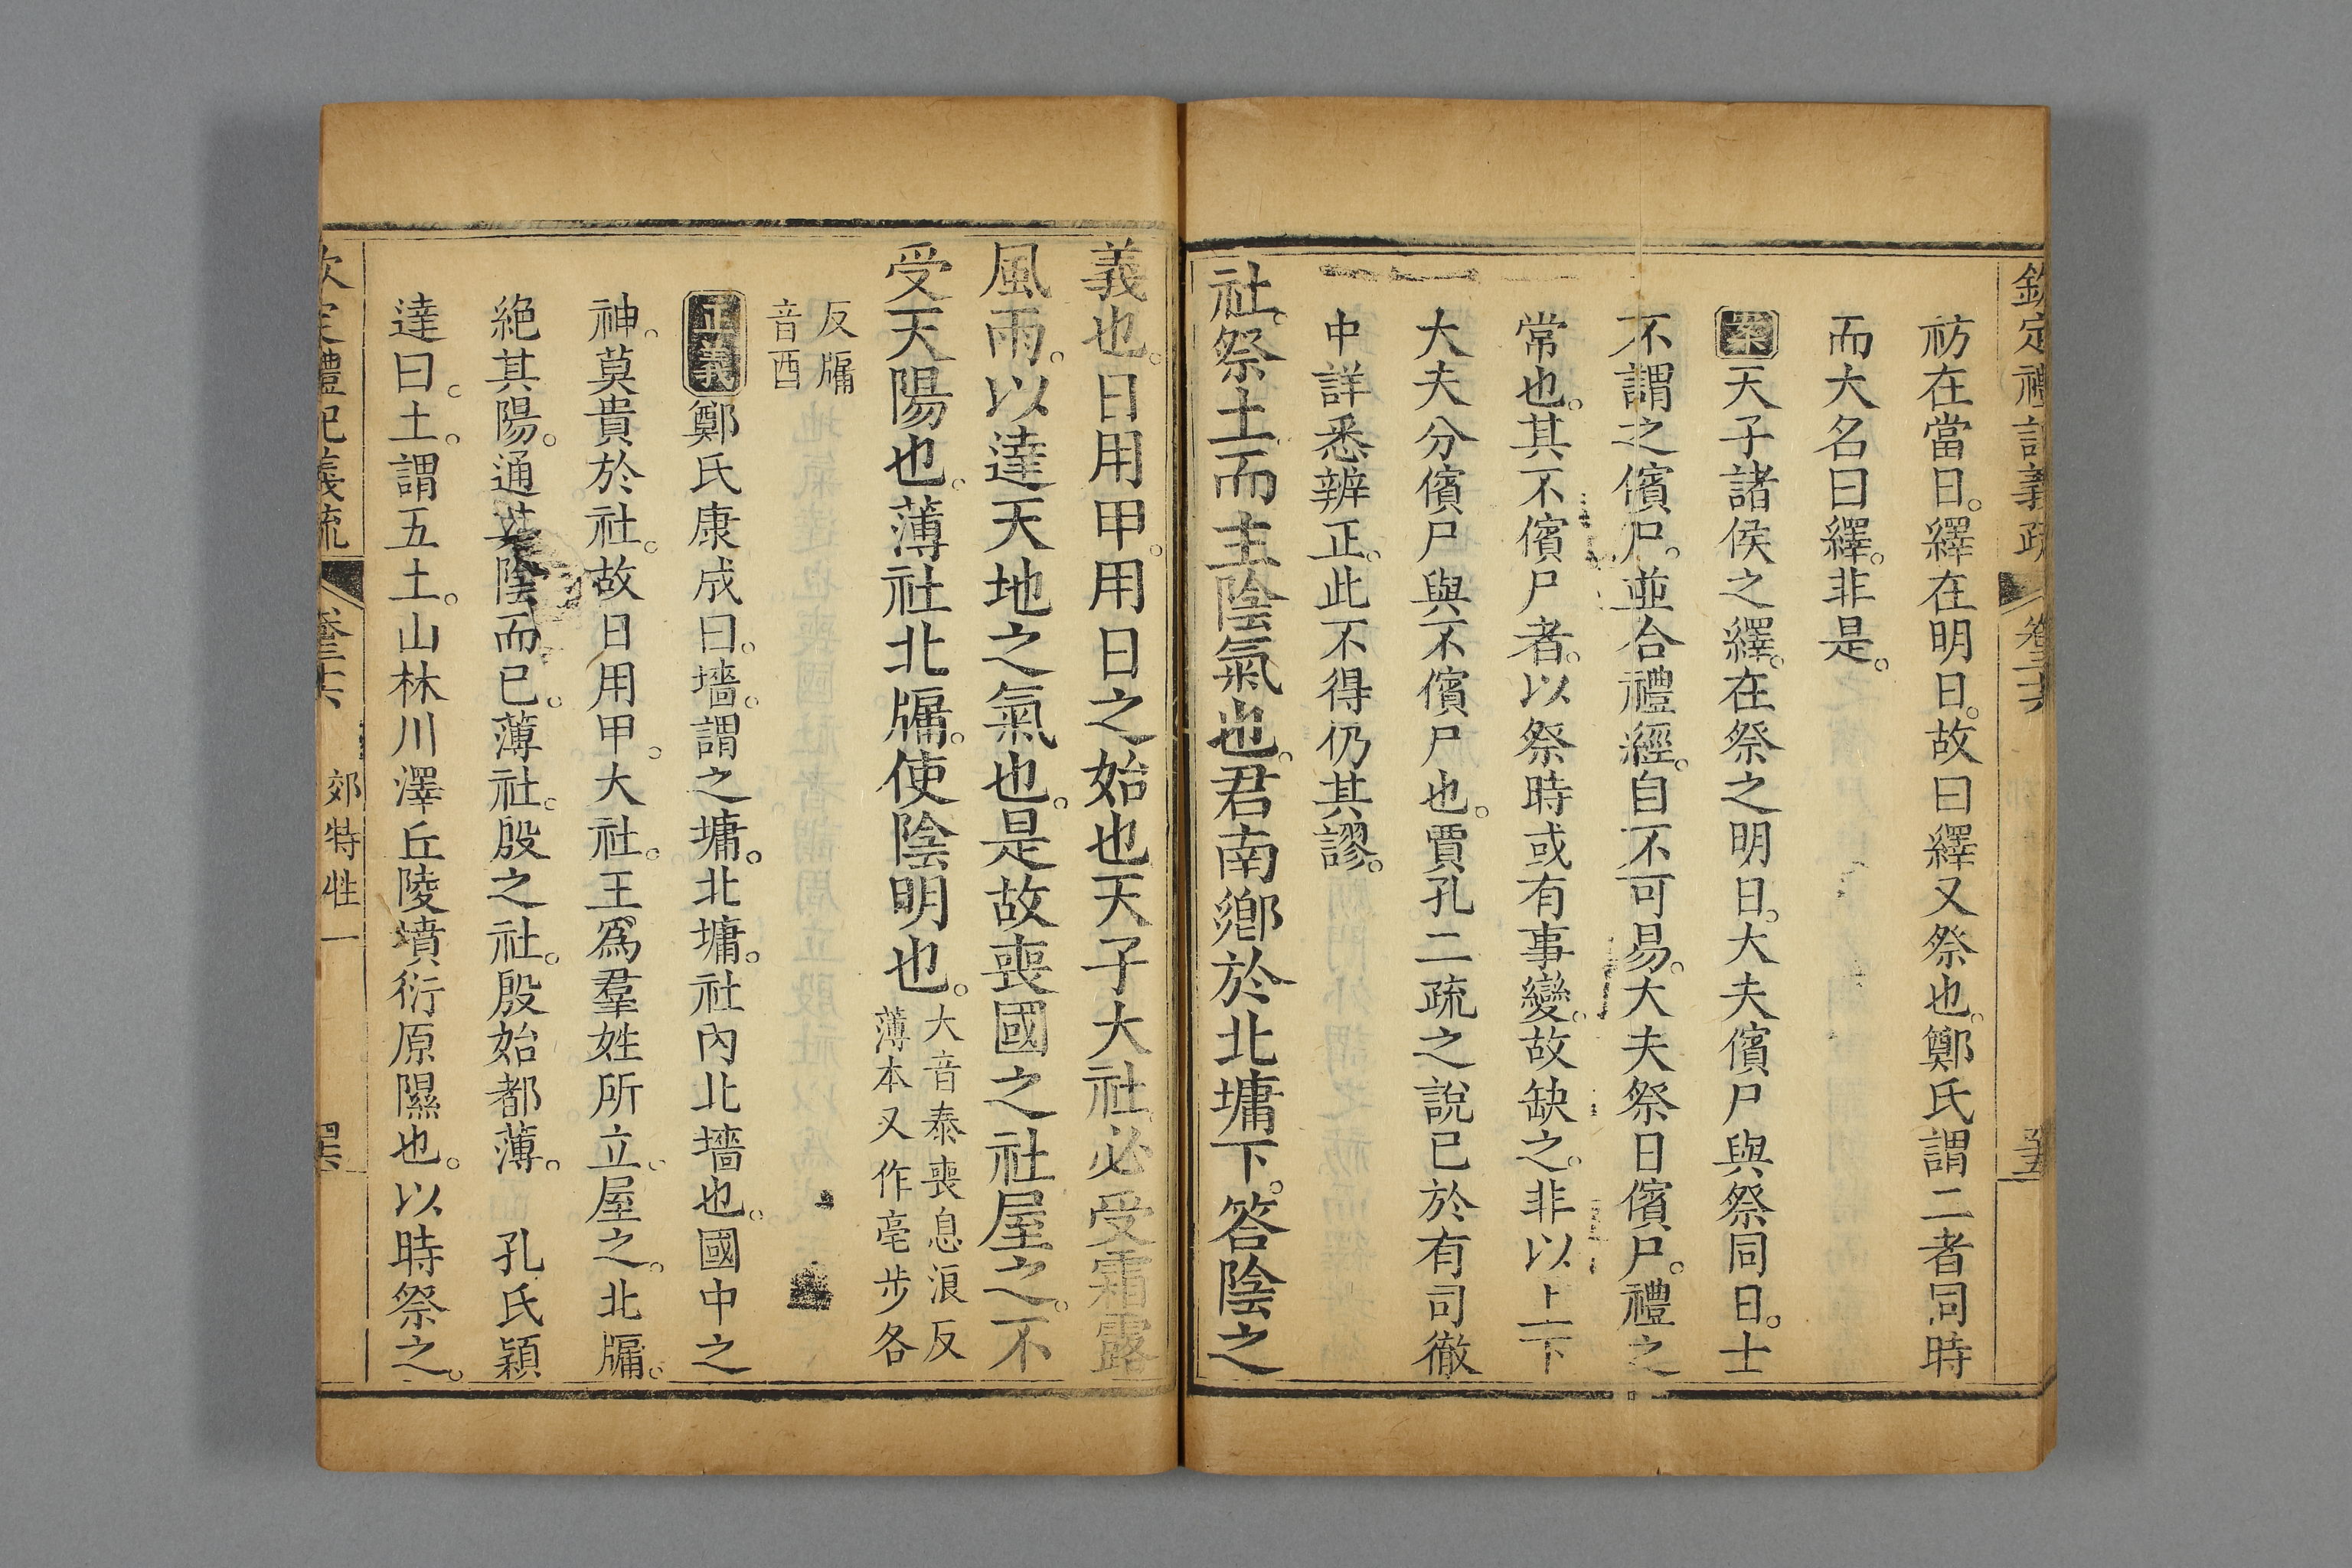 欽定禮記義疏 卷三十六 至五
祊在當日。繹在明日。故曰繹又祭也。鄭氏謂二者同時
而大名曰繹。非是。
案天子諸侯之繹。在祭之明日。大夫儐尸與祭同日。士
不謂之儐尸。並合禮經。自不可易。大夫祭日儐尸。禮之
常也。其不儐尸者。以祭時或有事變。故缺之。非以上下
大夫分儐尸與不儐尸也。賈孔二疏之說已於有司徹
中詳悉辨正。此不得仍其謬。
社。祭土而主陰氣也。君南鄉於北墉下。答陰之
義也。日用甲。用日之始也天子大社必受霜露
風雨。以達天地之氣也。是故喪國之社屋之。不
受天陽也。薄社北牖。使陰明也。大音泰喪息浪反
薄本又作亳步各
反牖
音酉
正義鄭氏康成曰。墻。謂之墉。北墉。社內北墻也。國中之
神。莫貴於社。故日用甲。大社。王爲羣姓所立。屋之。北牖。
絶其陽。通其陰而已。薄社。殷之社。殷始都薄。 孔氏穎
達曰。土。謂五土。山林川澤丘陵墳衍原隰也。以時祭之。
欽定禮記義疏 卷三十六 郊特牲一